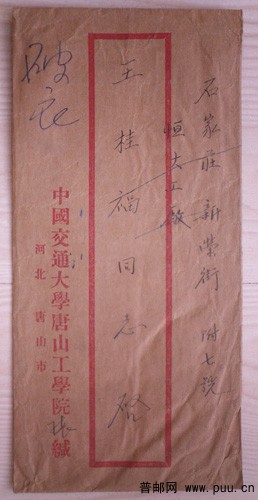 石家莊新榮街附七號
恒大工廠
王桂福同志啓
中國交通大學唐山工學院緘
河北唐山市
普邮网 www.puu.cn